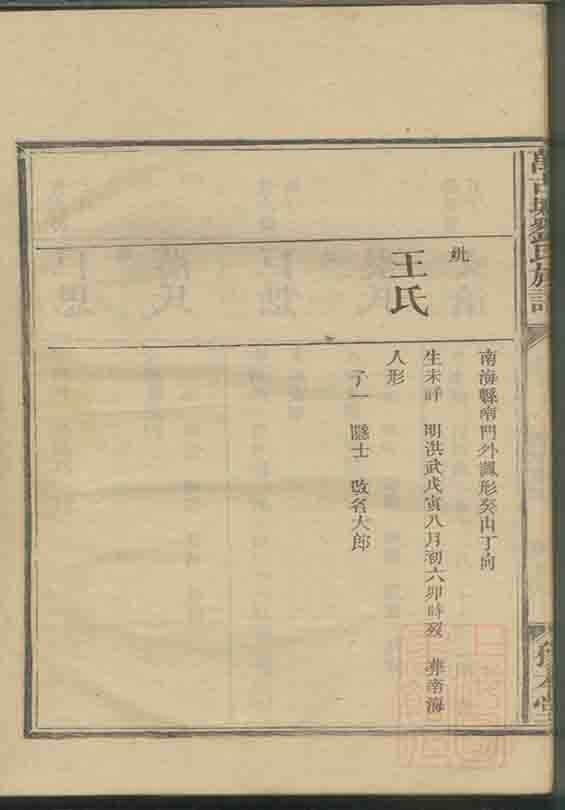 南海縣南門外鳳形癸山丁向
妣
王氏
生未詳 明洪武戊寅八月初六卯時歿 葬南海
人形
子一 隱士 改名大郎